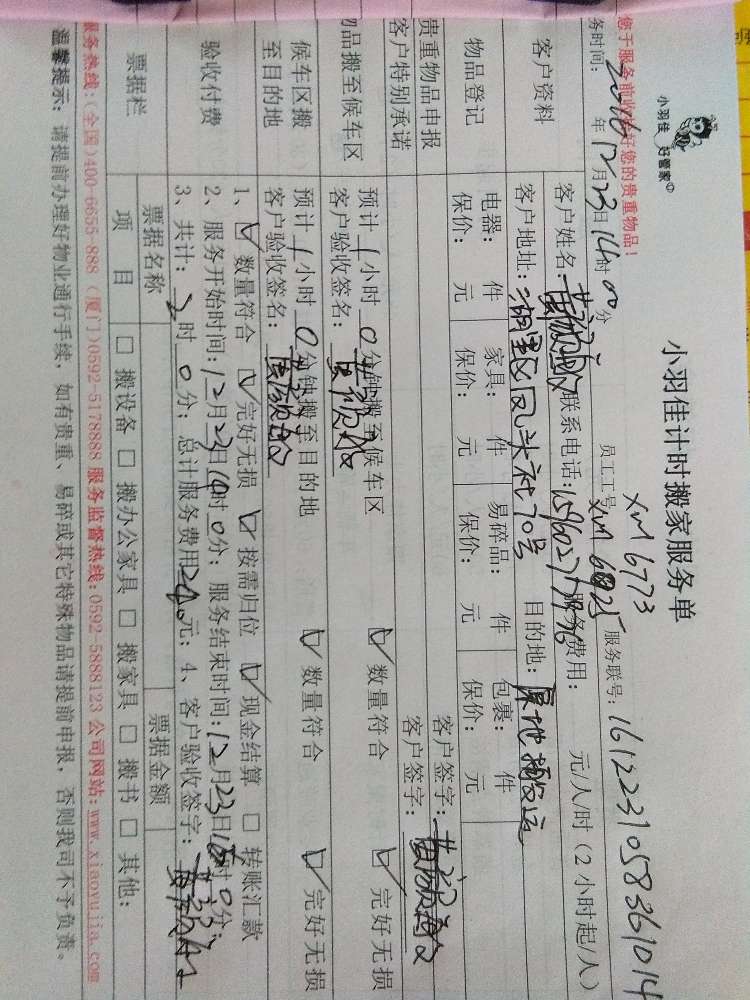 您于服务前收好您的贵重物品!
小羽佳 好管家
小羽佳计时搬家服务单
XM6773
务时间: 2016年12月23日14时00分 员工工号: XM6825 服务联号: 1612231058361014
客户资料 客户姓名: 联系电话: 服务费用: 元/人/时(2小时起/人)
客户地址: 湖里区凤头社70号 目的地: 原地搬运
物品登记 电器: 件 家具: 件 易碎品: 件 包裹: 件
保价: 元 保价: 元 保价: 元 保价: 元
贵重物品申报 客户签字:
客户特别承诺 客户签字:
物品搬至候车区 预计1小时0分钟搬至候车区 ☑数量符合 ☑完好无损
客户验收签名:
候车区搬至目的地 预计1小时0分钟搬至目的地 ☑数量符合 ☑完好无损
客户验收签名:
验收付费 1、☑数量符合 ☑完好无损 ☑按需归位 ☑现金结算 □转账汇款
2、服务开始时间: 12月23日14时0分; 服务结束时间: 12月23日16时0分;
3、共计: 2时0分; 总计服务费用240元; 4、客户验收签字:
票据栏 票据名称 票据金额
项目 □搬设备 □搬办公家具 □搬家具 □搬书 □其他:
服务热线:(全国)400-6655-888 (厦门)0592-5178888 服务监督热线:0592-5888123 公司网站:www.xiaoyujia.com
温馨提示: 请提前办理好物业通行手续, 如有贵重、易碎或其它特殊物品请提前申报, 否则我司不予负责。